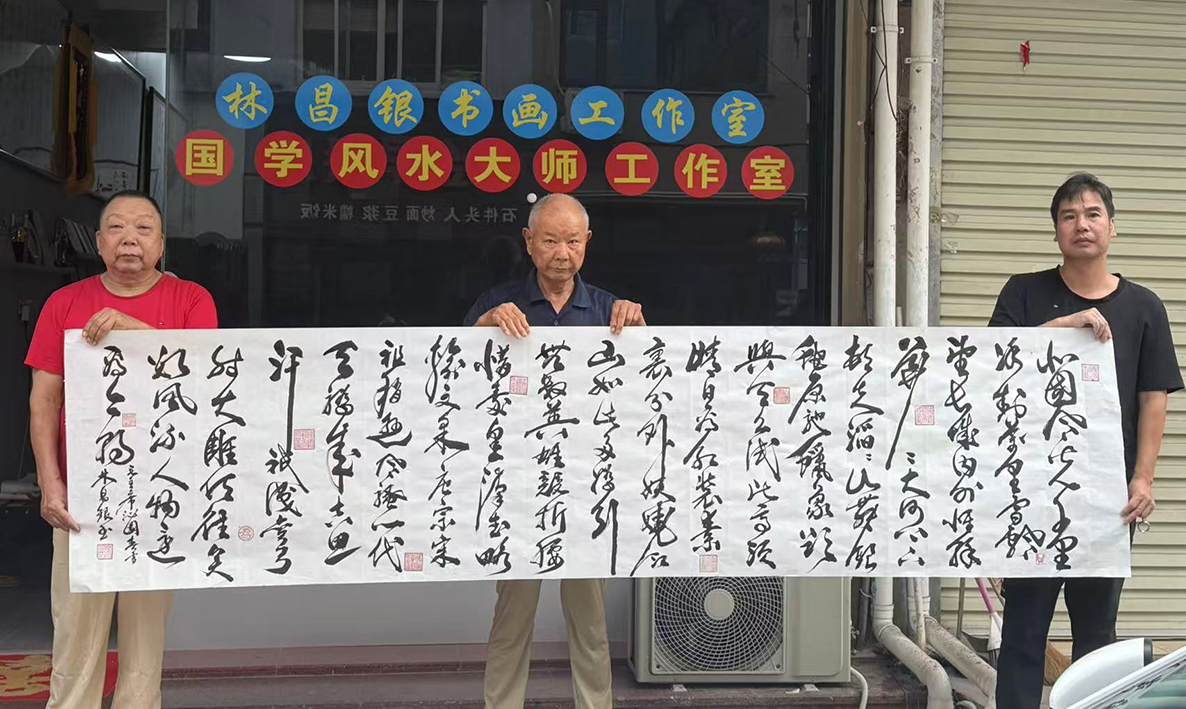 林昌银书画工作室
国学风水大师工作室
炒面 豆浆 糯米饭
北國风光千里
冰封萬里雪飘
望长城内外惟餘
莽々大河上下
顿失滔々山舞银
蛇原驰蠟象欲
與天公试比高须
晴日看红装素
裹分外妖娆江
山如此多娇引
无数英雄竞折腰
惜秦皇漢武略
输文采唐宗宋
祖稍逊风骚一代
天骄成吉思
汗祇识弯弓
射大雕俱往矣
数风流人物还
看今朝
毛主席沁园春雪
林昌银书